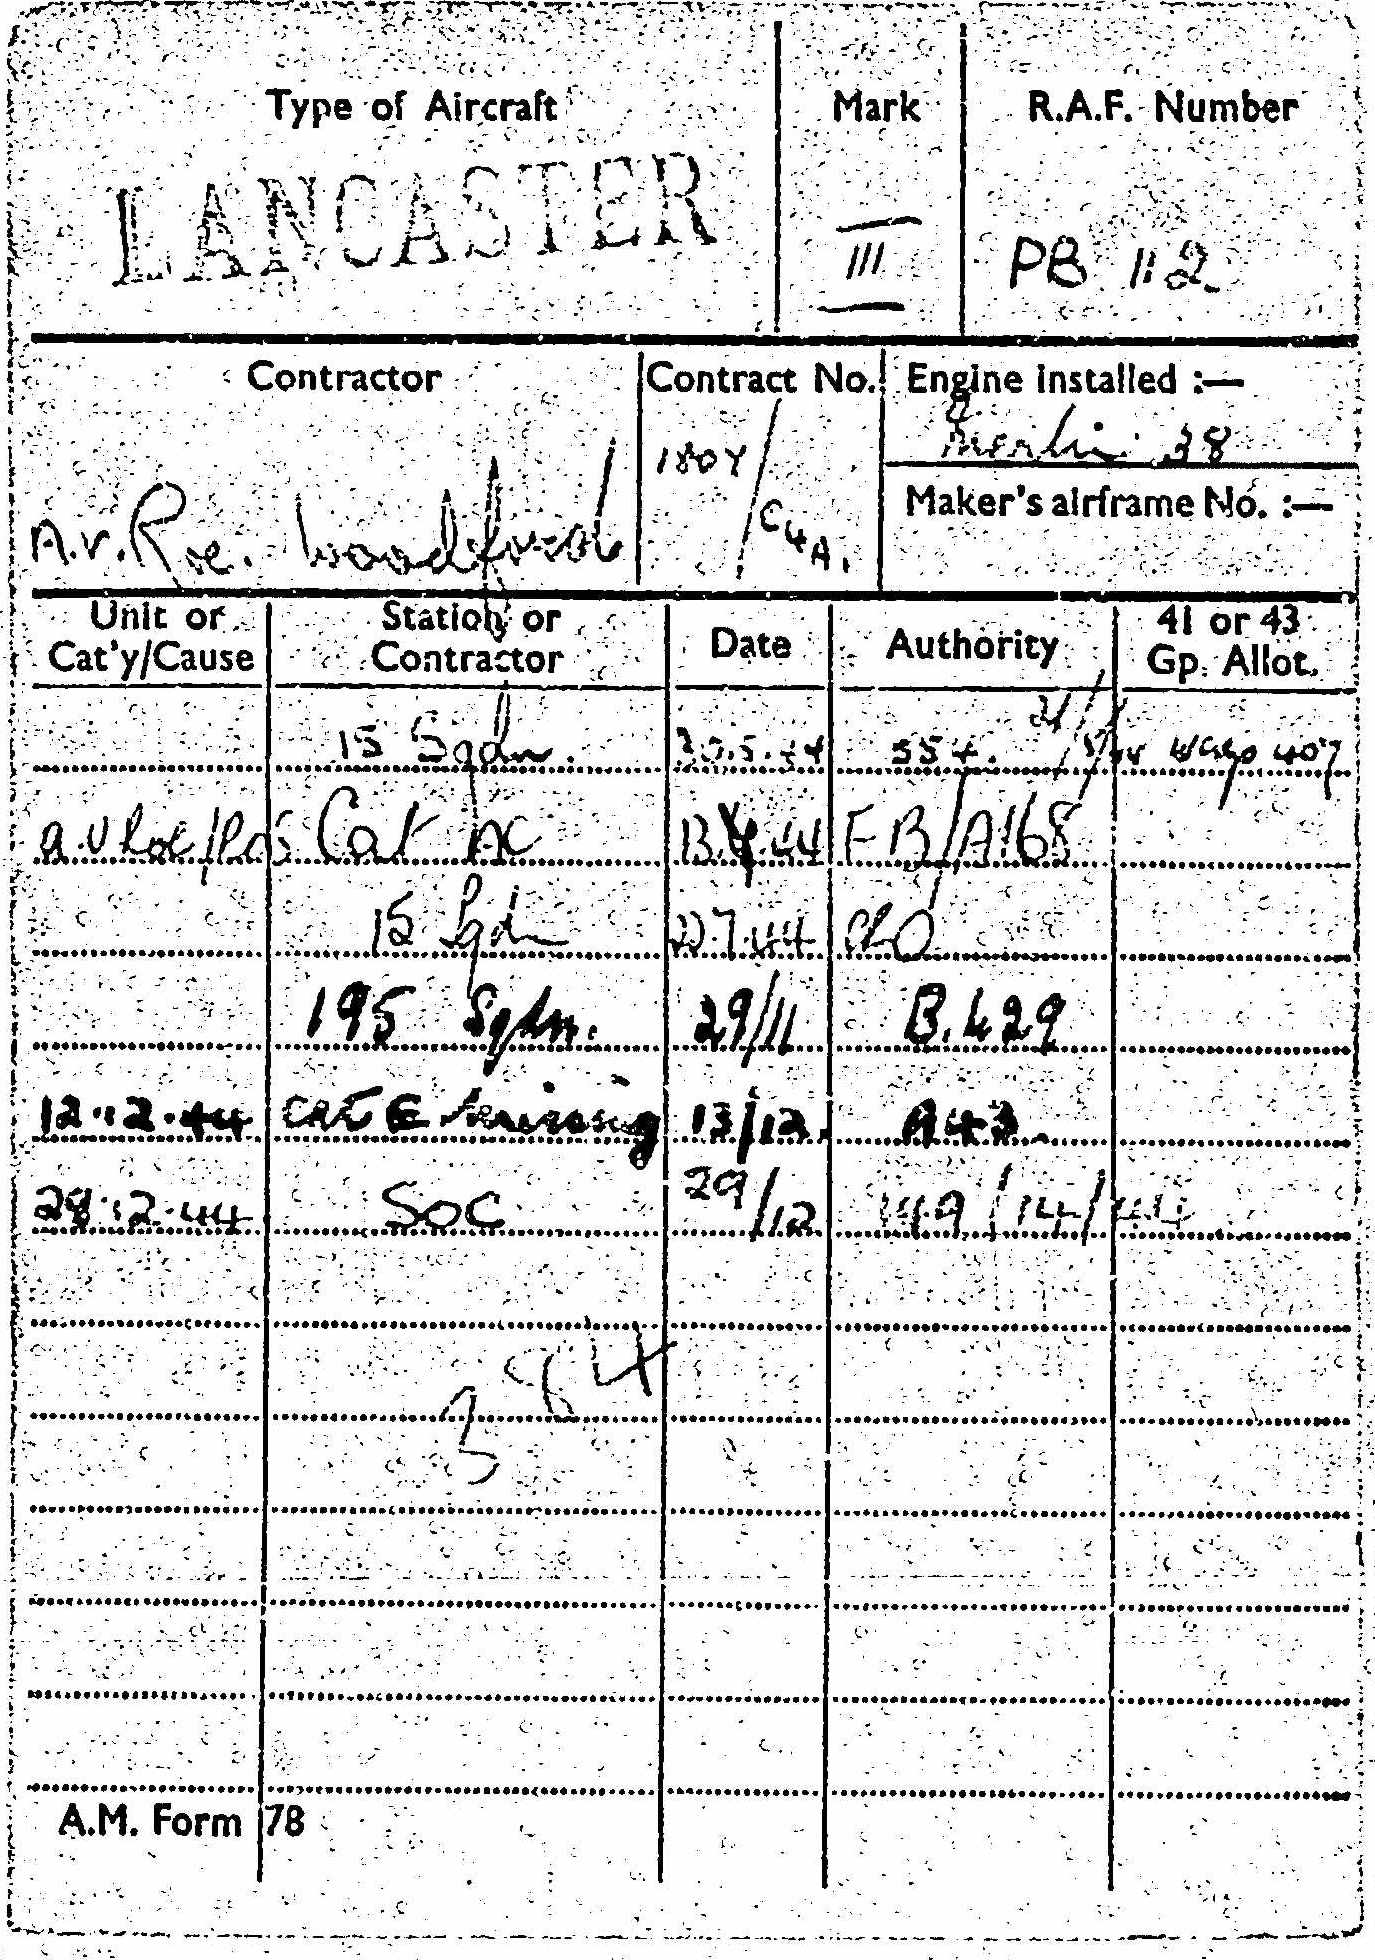 Type of Aircraft Mark R.A.F. Number
LANCASTER III PB 112
Contractor Contract No. Engine installed :—
Merlin 38
1807/C4A.
Maker's airframe No. :—
A.V. Roe. Woodford
Unit or Cat'y/Cause Station or Contractor Date Authority 41 or 43 Gp. Allot.
15 Sqdn. 5.44 554. 407
A.V Roe/ROS Cat AC 44 FB/A168
15 Sqdn 7.44
195 Sqdn. 29/11 B.429
12.12.44 Cat E Missing 13/12. A43.
28.12.44 SOC 29/12 149/14/44
3 8 4
A.M. Form 78